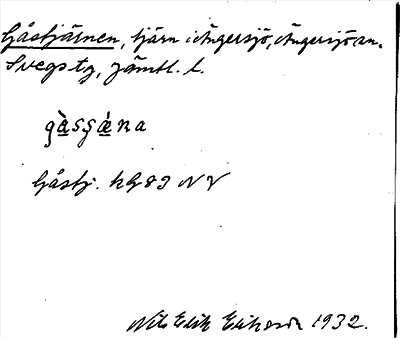 Gåstjärnen, tjärn i Ängersjö, Ängersjö, an.
Svegs tg, Jämtl. l.
gàsſǽna
Gåstj. hG83 NV
Nils Erik Erikson 1932.